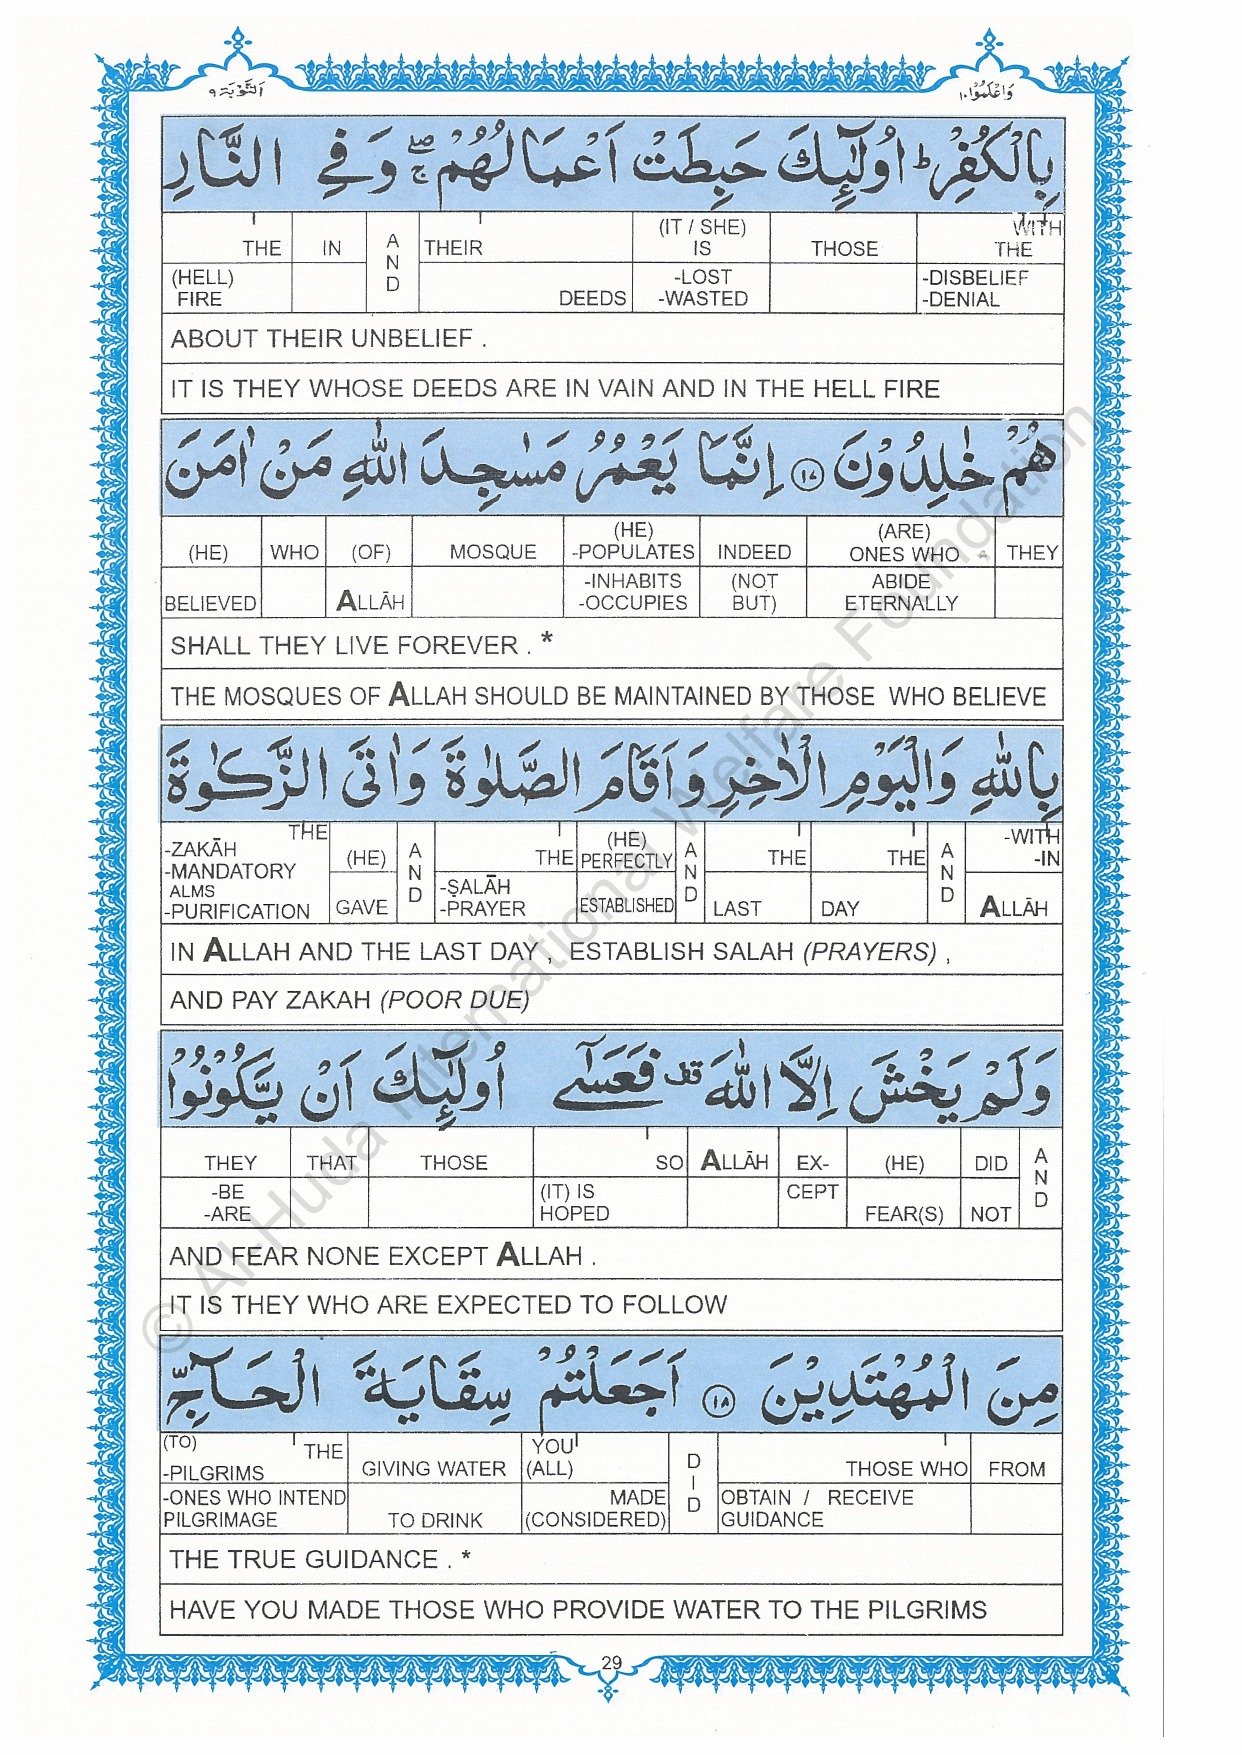 وَاعْلَمُوْا ١٠
اَلتَّوْبَة ٩
بِالْكُفْرِ ؕ اُولٰٓئِكَ حَبِطَتْ اَعْمَالُهُمْ ۖۚ وَ فِي النَّارِ
THE IN AND THEIR (IT / SHE) IS THOSE WITH THE
(HELL) FIRE DEEDS -LOST -WASTED -DISBELIEF -DENIAL
ABOUT THEIR UNBELIEF .
IT IS THEY WHOSE DEEDS ARE IN VAIN AND IN THE HELL FIRE
هُمْ خٰلِدُوْنَ ١٧ اِنَّمَا يَعْمُرُ مَسٰجِدَ اللّٰهِ مَنْ اٰمَنَ
(HE) WHO (OF) MOSQUE (HE) -POPULATES INDEED (ARE) ONES WHO THEY
BELIEVED ALLĀH -INHABITS -OCCUPIES (NOT BUT) ABIDE ETERNALLY
SHALL THEY LIVE FOREVER . *
THE MOSQUES OF ALLAH SHOULD BE MAINTAINED BY THOSE WHO BELIEVE
بِاللّٰهِ وَ الْيَوْمِ الْاٰخِرِ وَ اَقَامَ الصَّلٰوةَ وَ اٰتَى الزَّكٰوةَ
THE (HE) AND THE (HE) PERFECTLY AND THE THE AND -WITH -IN
-ZAKĀH -MANDATORY ALMS -PURIFICATION GAVE -ṢALĀH -PRAYER ESTABLISHED LAST DAY ALLĀH
IN ALLAH AND THE LAST DAY , ESTABLISH SALAH (PRAYERS) ,
AND PAY ZAKAH (POOR DUE)
وَ لَمْ يَخْشَ اِلَّا اللّٰهَ قف فَعَسٰٓى اُولٰٓئِكَ اَنْ يَّكُوْنُوْا
THEY THAT THOSE SO ALLĀH EX- (HE) DID AND
-BE -ARE (IT) IS HOPED CEPT FEAR(S) NOT
AND FEAR NONE EXCEPT ALLAH .
IT IS THEY WHO ARE EXPECTED TO FOLLOW
مِنَ الْمُهْتَدِيْنَ ١٨ اَجَعَلْتُمْ سِقَايَةَ الْحَآجِّ
(TO) THE -PILGRIMS GIVING WATER YOU (ALL) DID THOSE WHO FROM
-ONES WHO INTEND PILGRIMAGE TO DRINK MADE (CONSIDERED) OBTAIN / RECEIVE GUIDANCE
THE TRUE GUIDANCE . *
HAVE YOU MADE THOSE WHO PROVIDE WATER TO THE PILGRIMS
29
© Al-Huda International Welfare Foundation